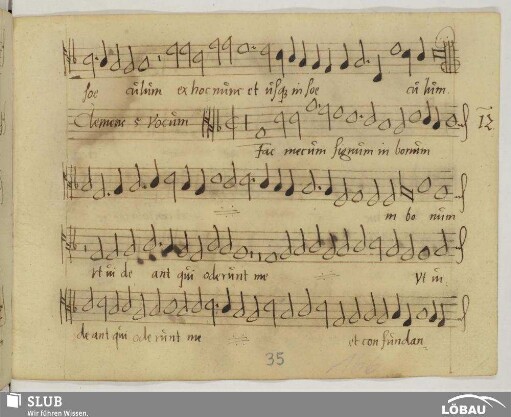 soe culum ex hoc nunc et usq in soe culum.
Clemens 5 vocum
12
Fac mecum signum in bonum
in bo num
Vt ui de ant qui oderunt me Vt ui
de ant qui ode runt me et confundan
35
SLUB
Wir führen Wissen.
LÖBAU